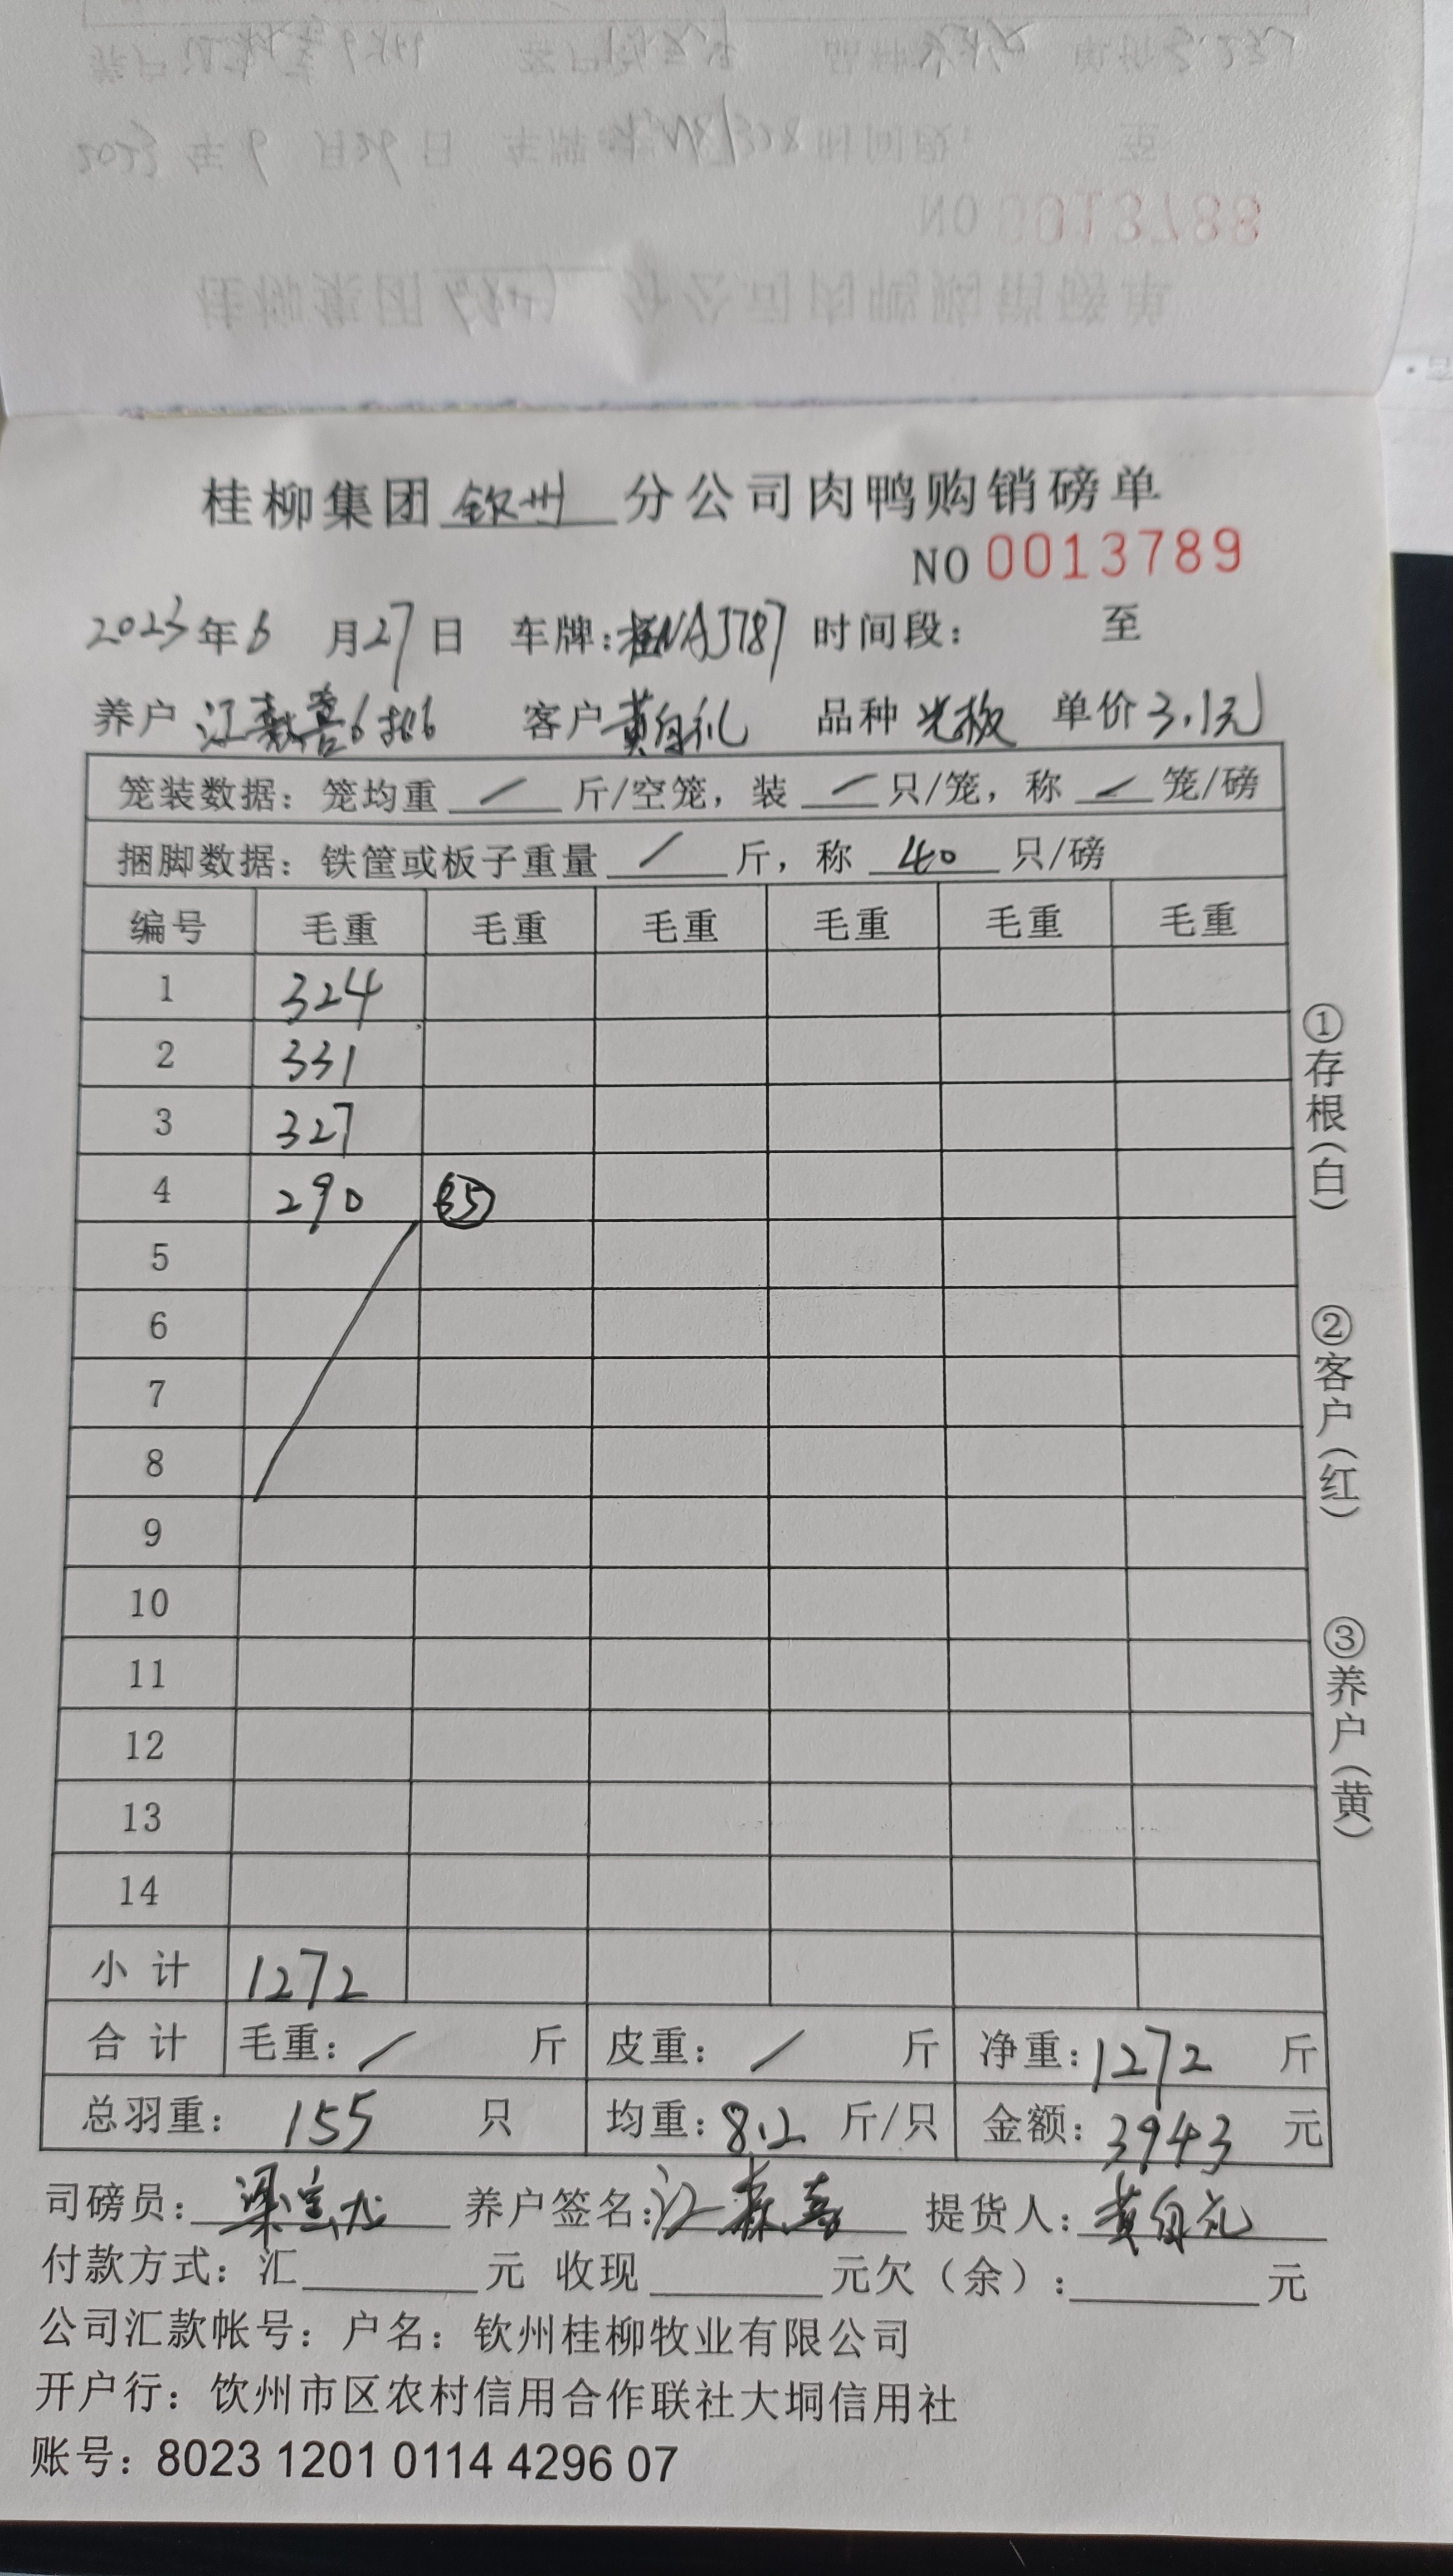 桂柳集团钦州分公司肉鸭购销磅单
NO 0013789
2023年6月27日 车牌:桂NA3787 时间段: 至
养户 江 喜6批6 客户 黄自礼 品种 光板 单价3.1元
笼装数据: 笼均重 / 斤/空笼, 装 / 只/笼, 称 / 笼/磅
捆脚数据: 铁筐或板子重量 / 斤, 称 40 只/磅
编号 毛重 毛重 毛重 毛重 毛重 毛重
1 324
2 331
3 327
4 290 35
5
6
7
8
9
10
11
12
13
14
小计 1272
合计 毛重: / 斤 皮重: / 斤 净重: 1272 斤
总羽重: 155 只 均重: 8.2 斤/只 金额: 3943 元
司磅员: 梁 龙 养户签名: 江 喜 提货人: 黄自礼
付款方式: 汇 元 收现 元欠(余): 元
公司汇款帐号: 户名: 钦州桂柳牧业有限公司
开户行: 饮州市区农村信用合作联社大垌信用社
账号: 8023 1201 0114 4296 07
①存根(白)
②客户(红)
③养户(黄)